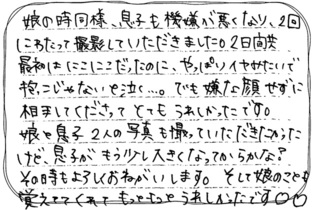 娘の時同様、息子も機嫌が悪くなり、2回
にわたって撮影していただきました。2日間共
最初はにこにこだったのに、やっぱりイヤみたいで
抱っこじゃないと泣く…。でも嫌な顔せずに
相手してくださって とても うれしかったです。
娘と息子 2人の写真も撮っていただきたかった
けど、息子が もう少し大きくなってからかな?
その時もよろしくおねがいします。 そして娘のことも
覚えててくれて もっともっと うれしかったです○○